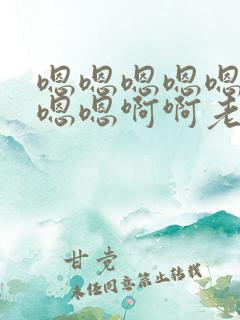 嗯嗯嗯嗯嗯
嗯嗯啊啊老
甘党
未经同意禁止转载